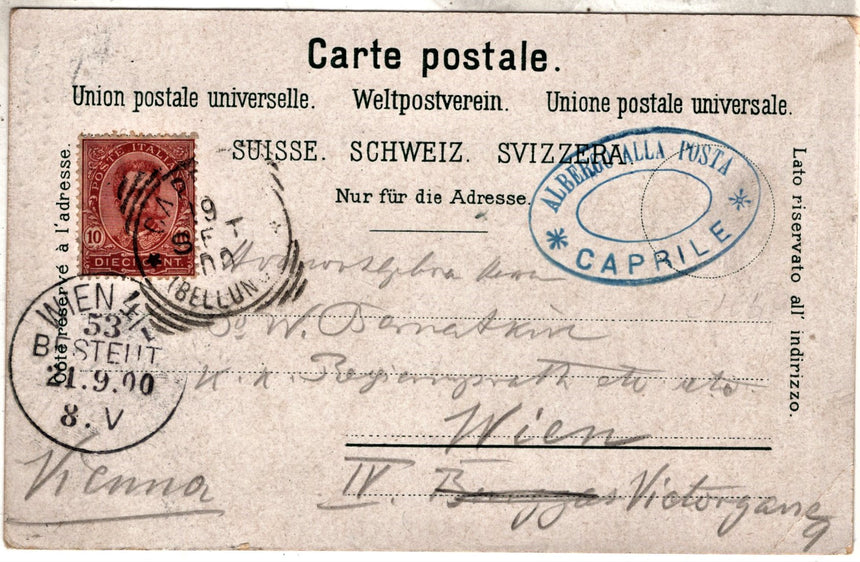 Carte postale.
Union postale universelle. Weltpostverein. Unione postale universale.
SUISSE. SCHWEIZ. SVIZZERA
Nur für die Adresse.
Côté réservé à l'adresse.
Lato riservato all' indirizzo.
POSTE ITALIANE
10
DIECI CENT.
19
00
(BELLUN
ALBERGO ALLA POSTA
* CAPRILE *
WIEN 4/1
53
BESTELLT
21.9.00
8. V
W.
k. k. Regierungsrath etc etc
Wien
IV. Victorgasse
9
Vienna